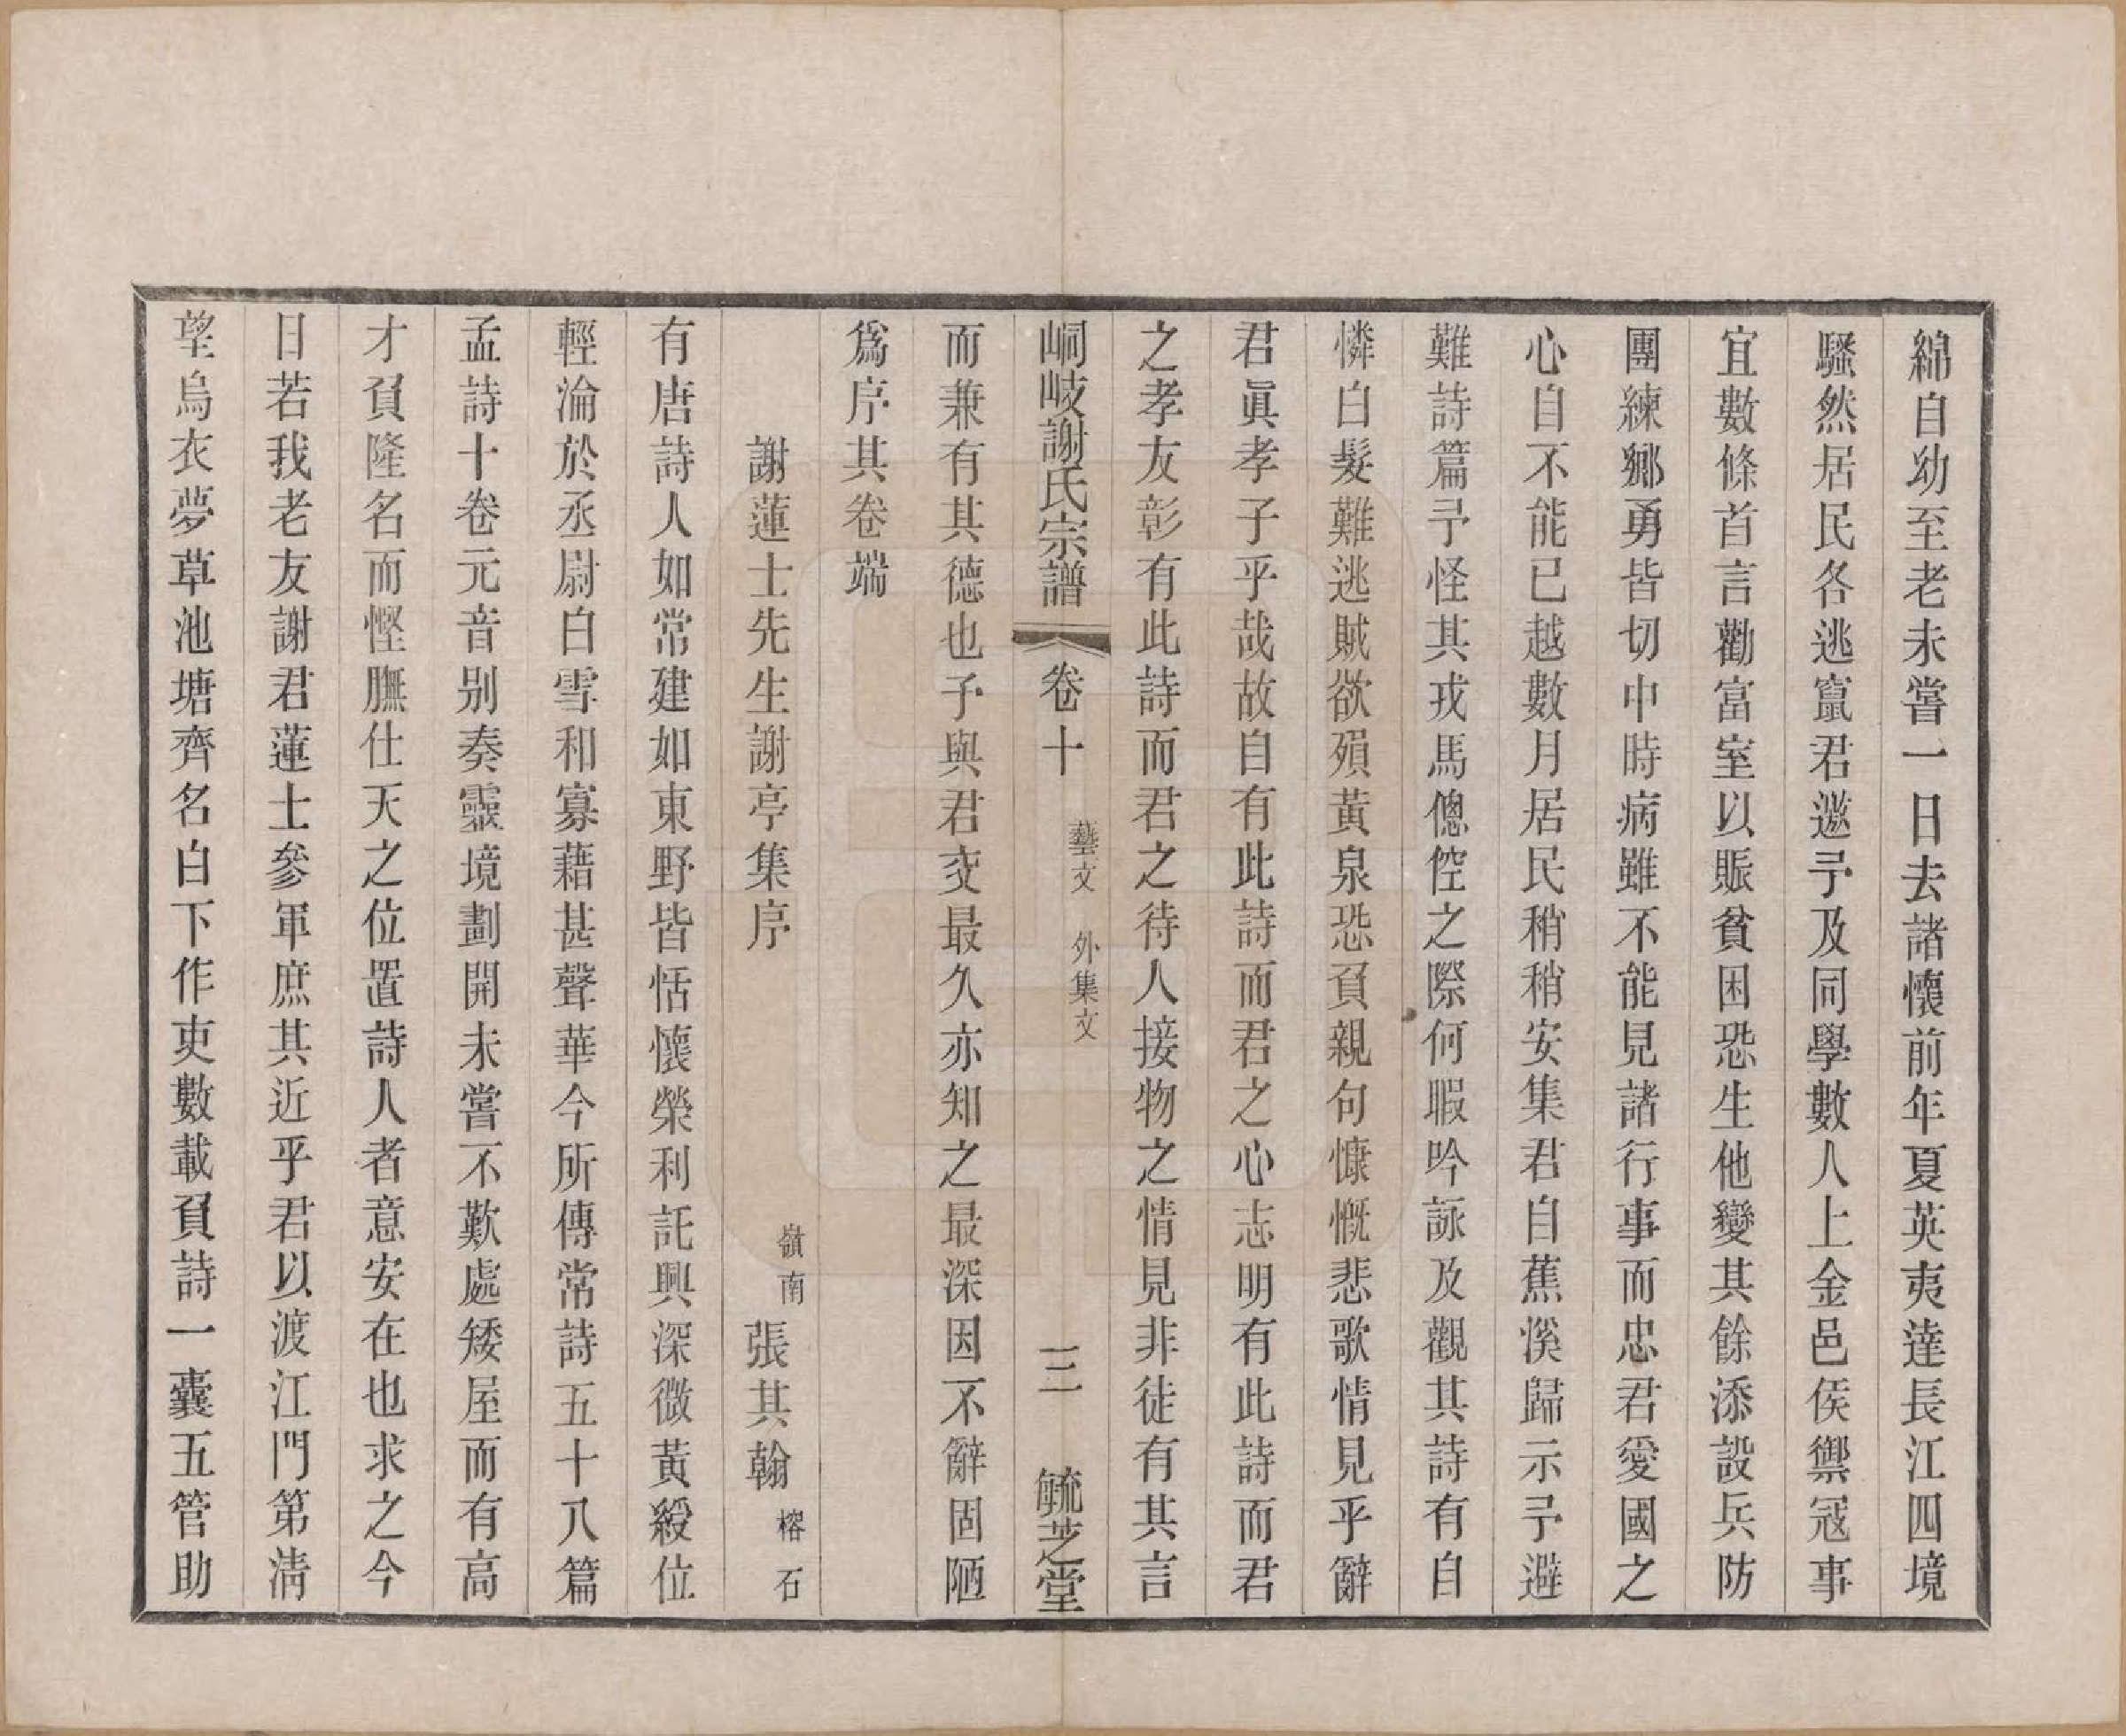 綿自幼至老未嘗一日去諸懷前年夏英夷達長江四境
騷然居民各逃竄君邀予及同學數人上金邑侯禦寇事
宜數條首言勸富室以賑貧困恐生他變其餘添設兵防
團練鄉勇皆切中時病雖不能見諸行事而忠君愛國之
心自不能已越數月居民稍稍安集君自蕉溪歸示予避
難詩篇予怪其戎馬傯倥之際何暇吟詠及觀其詩有自
憐白髮難逃賊欲殞黃泉恐負親句慷慨悲歌情見乎辭
君眞孝子乎哉故自有此詩而君之心志明有此詩而君
之孝友彰有此詩而君之待人接物之情見非徒有其言
峒岐謝氏宗譜 卷十 藝文 外集文 三 毓芝堂
而兼有其德也予與君交最久亦知之最深因不辭固陋
爲序其卷端
謝蓮士先生謝亭集序 嶺南 張其翰 榕石
有唐詩人如常建如東野皆恬懷榮利託興深微黃綬位
輕淪於丞尉白雪和寡藉甚聲華今所傳常詩五十八篇
孟詩十卷元音別奏靈境劃開未嘗不歎處矮屋而有高
才負隆名而慳膴仕天之位置詩人者意安在也求之今
日若我老友謝君蓮士參軍庶其近乎君以渡江門第淸
望烏衣夢草池塘齊名白下作吏數載負詩一囊五管助